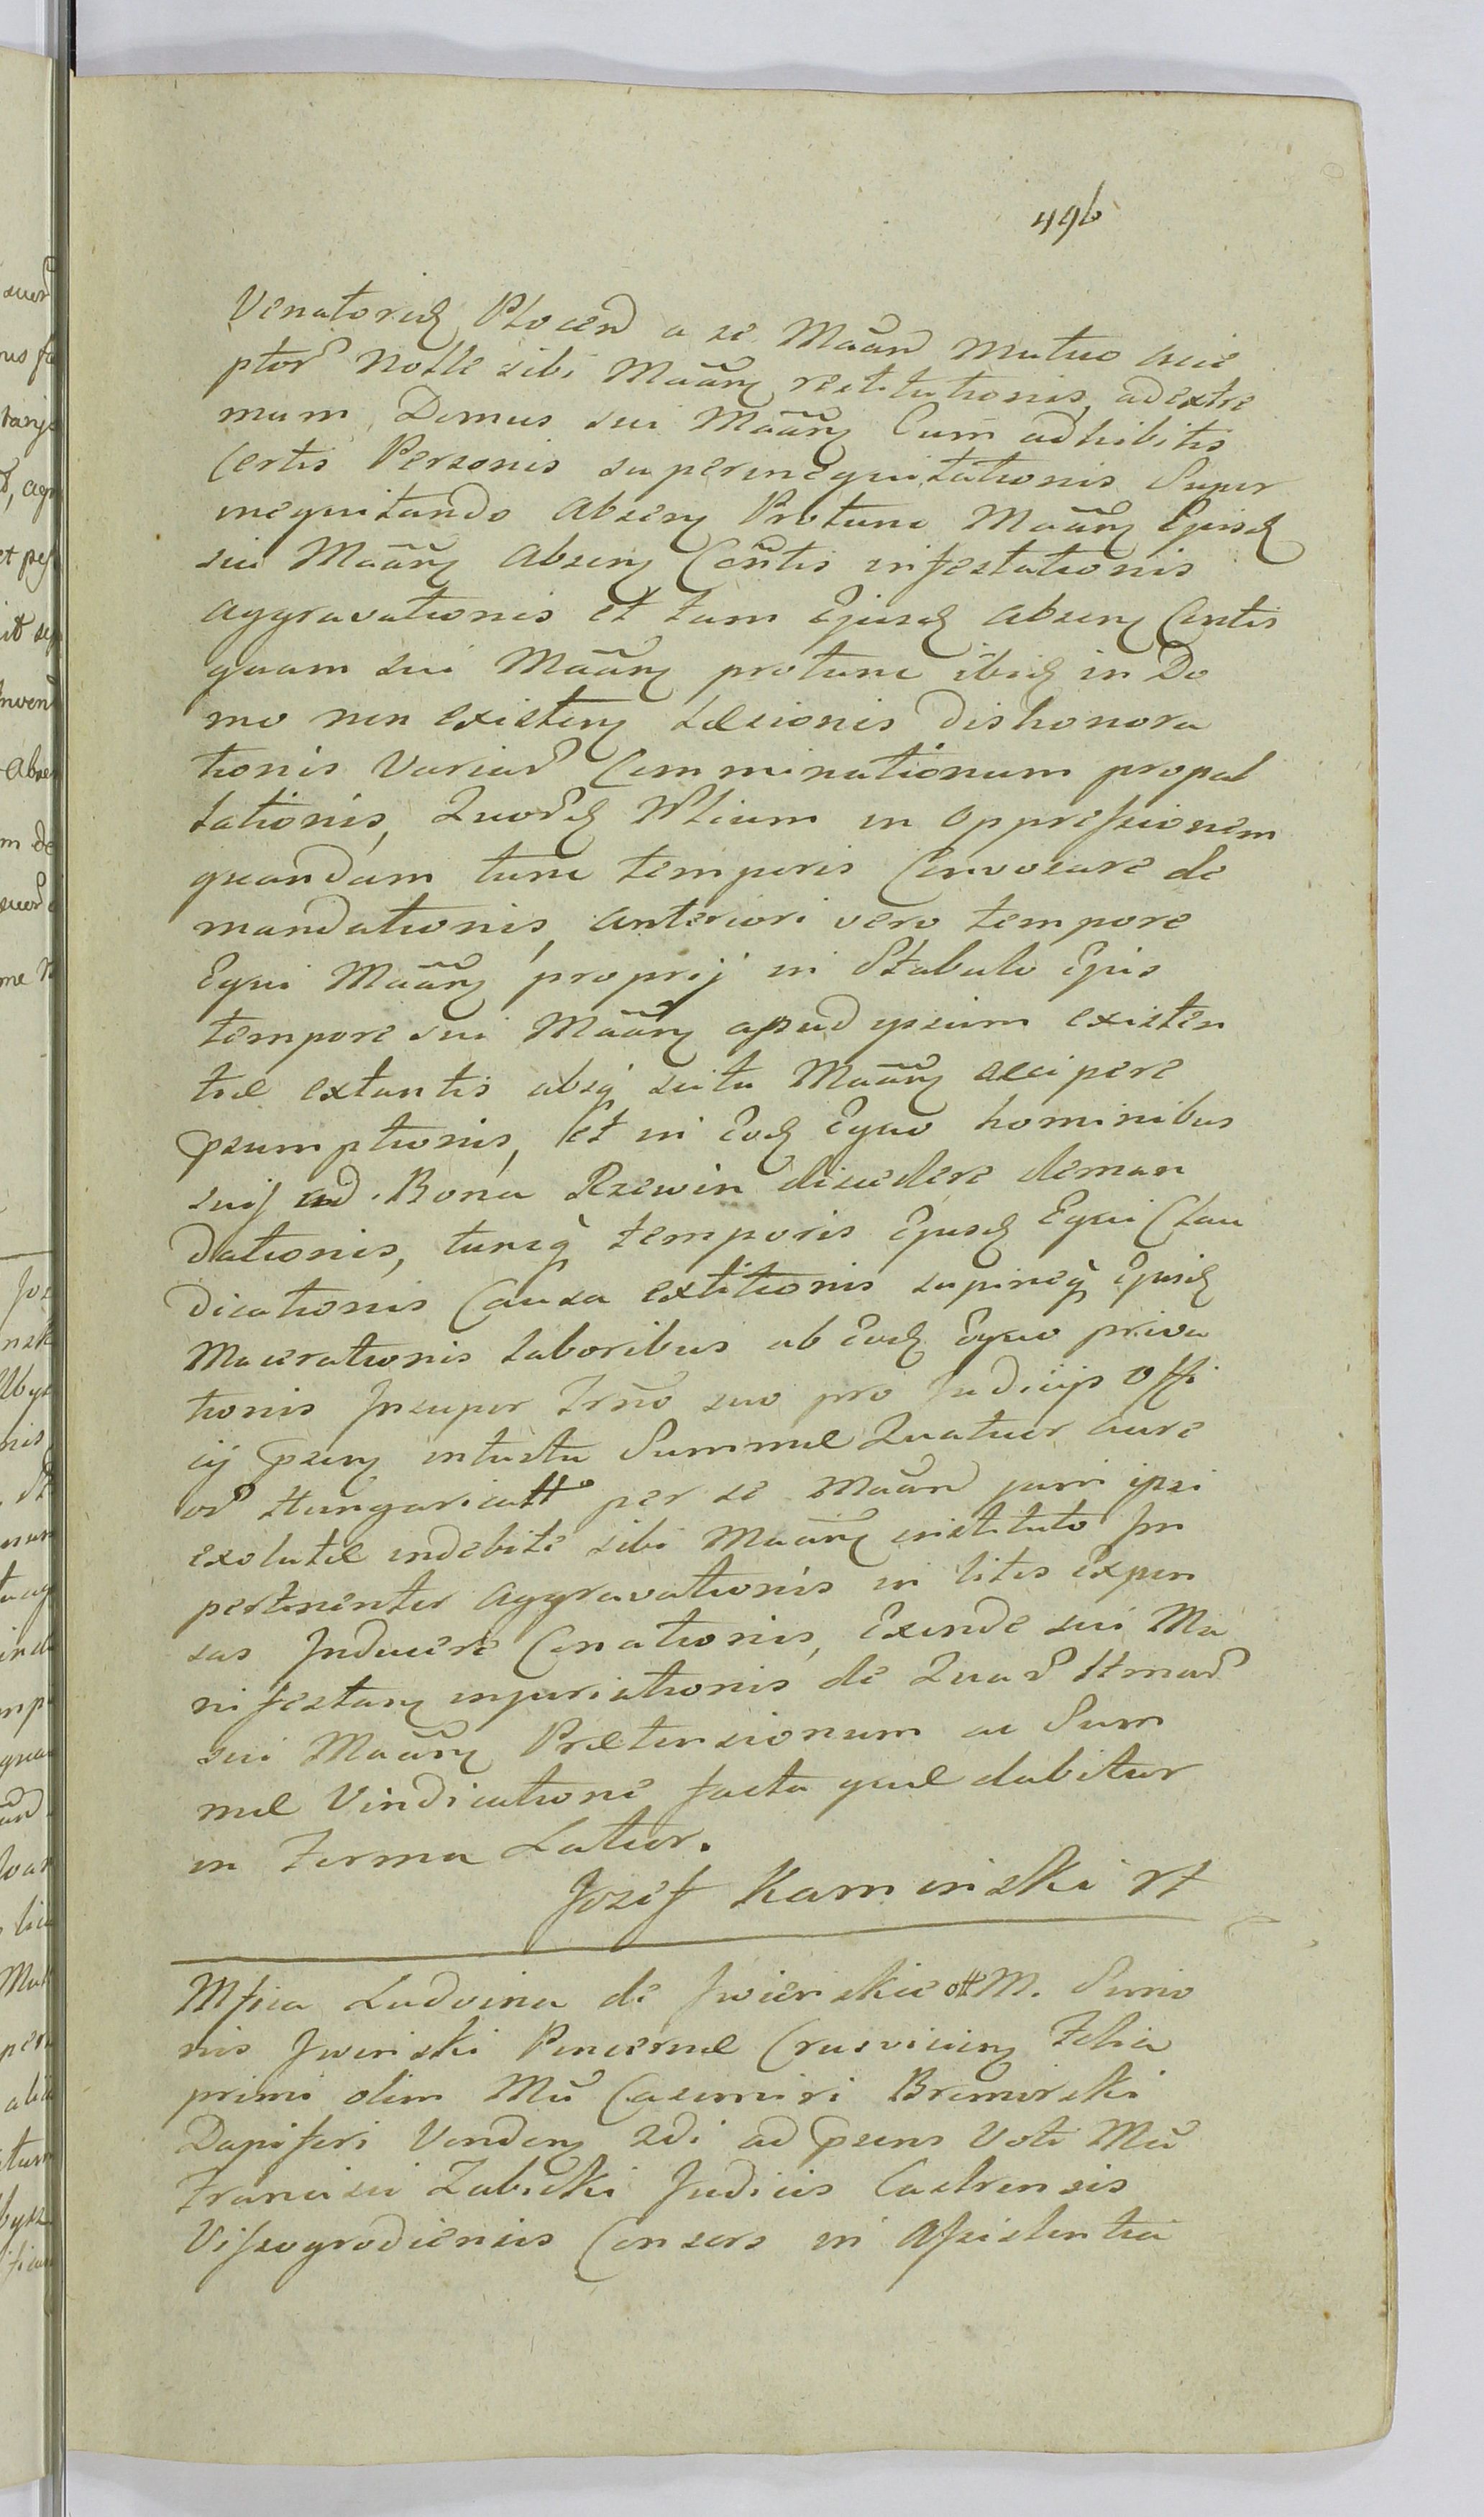 496
Venatoriq Plocen a se Maan Mutuo acce
ptor Nolle sibi Maanq restitutionis, ad extre
mum Domus sui Maanq Cum adhibitis
Certis Personis superinequitationis Super
inequitando Absenq Protunc Maanq Ejusq
sui Maanq Absenq Centis infestationis
aggravationis et tam Ejusq absenq Centis
quam sui Maanq protunc ibiq in Do
mo non existenq Læsionis dishonora
tionis Variar Comminationum propal
lationis, Quorq Wlium in oppressionem
quandam tunc temporis Convocare de
mandationis, anteriori vero tempore
Equi Maanq proprij in Stabulo Ejus
tempore sui Maanq apud ipsum existen
tiæ extantis absq scitu Maanq accipere
psumptionis, et in Eoq Equo hominibus
suis ad Bona Rzewin discedere deman
dationis, tuncq temporis Ejusq Equi Clau
dicationis Causa extitionis supineq Ejusq
Macerationis Laboribus ab Eoq Equo priva
tionis Insuper Trno suo pro Judicijs Offi
cij psenq intuitu Summæ Quatuor aure
or Hungarical per se Maan jam ipsi
exolutæ indebite sibi Maanq instituto Im
pertinenter Aggravationis in litis Expen
sas Inducere Conationis, Exinde sui Ma
nifestanq injuriationis de Quar Hmar
sui Maanq Prætensionum ac Sum
mæ Vindicatione facta quæ dabitur
in Forma Latior.
Jozef Kaminski
Mfica Ludvina de Iwienskie M. Simo
nis Iwinski Pincernæ Crusvicienq Filia
primi olim Mci Casimiri Bromirski
Dapiferi Vendenq 2di ad psens Voti Mci
Francisci Zabicki Judicis Castrensis
Vissogrodiensis Consors in Assistentia